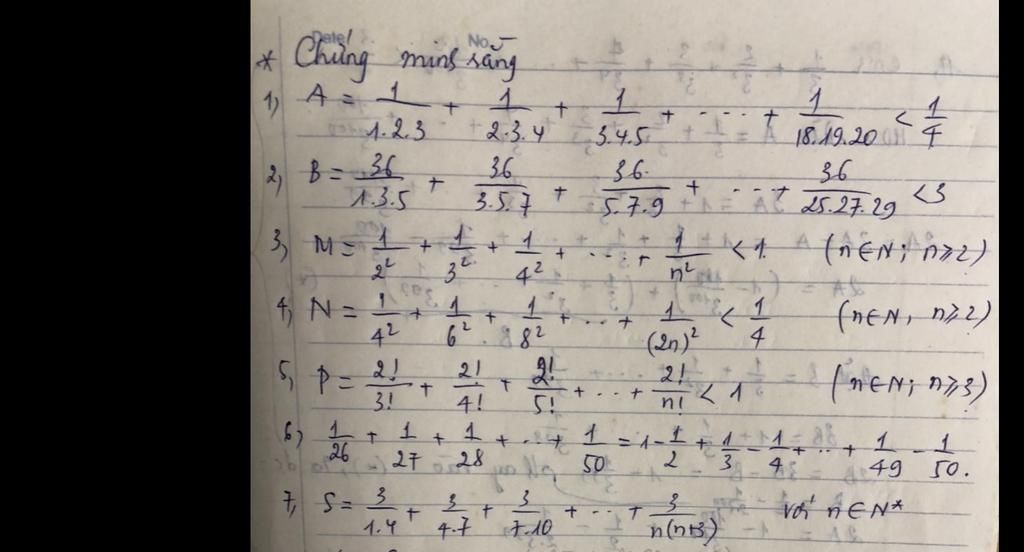 Date No.
* Chứng minh rằng
1) A = 1/1.2.3 + 1/2.3.4 + 1/3.4.5 + ... + 1/18.19.20 < 1/4
2) B = 36/1.3.5 + 36/3.5.7 + 36/5.7.9 + ... + 36/25.27.29 < 3
3) M = 1/2² + 1/3² + 1/4² + ... + 1/n² < 1. (n ∈ N; n ≥ 2)
4) N = 1/4² + 1/6² + 1/8² + ... + 1/(2n)² < 1/4 (n ∈ N, n ≥ 2)
5) P = 2!/3! + 2!/4! + 2!/5! + ... + 2!/n! < 1 (n ∈ N; n ≥ 3)
6) 1/26 + 1/27 + 1/28 + ... + 1/50 = 1 - 1/2 + 1/3 - 1/4 + ... + 1/49 - 1/50.
7) S = 3/1.4 + 3/4.7 + 3/7.10 + ... + 3/n(n+3) với n ∈ N*